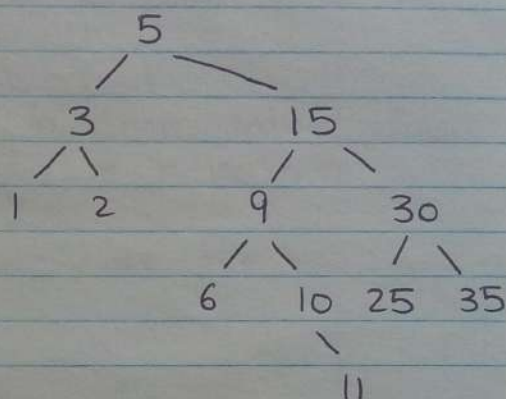 5
3 15
1 2 9 30
6 10 25 35
11